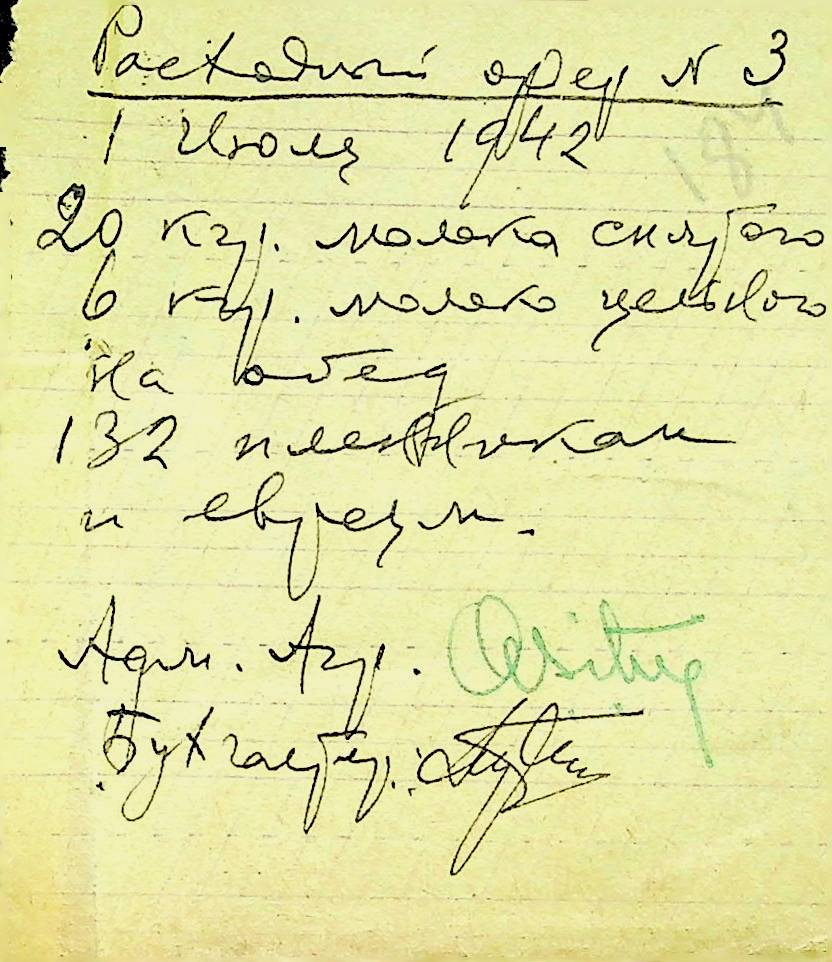 Расходный орд N 3
1 Июля 1942
184
20 кгр. молока снятого
6 кгр. молоко цельного
на обед
132 пленникам
и евреям.
Адм. Агр.
Бухгалтер.: